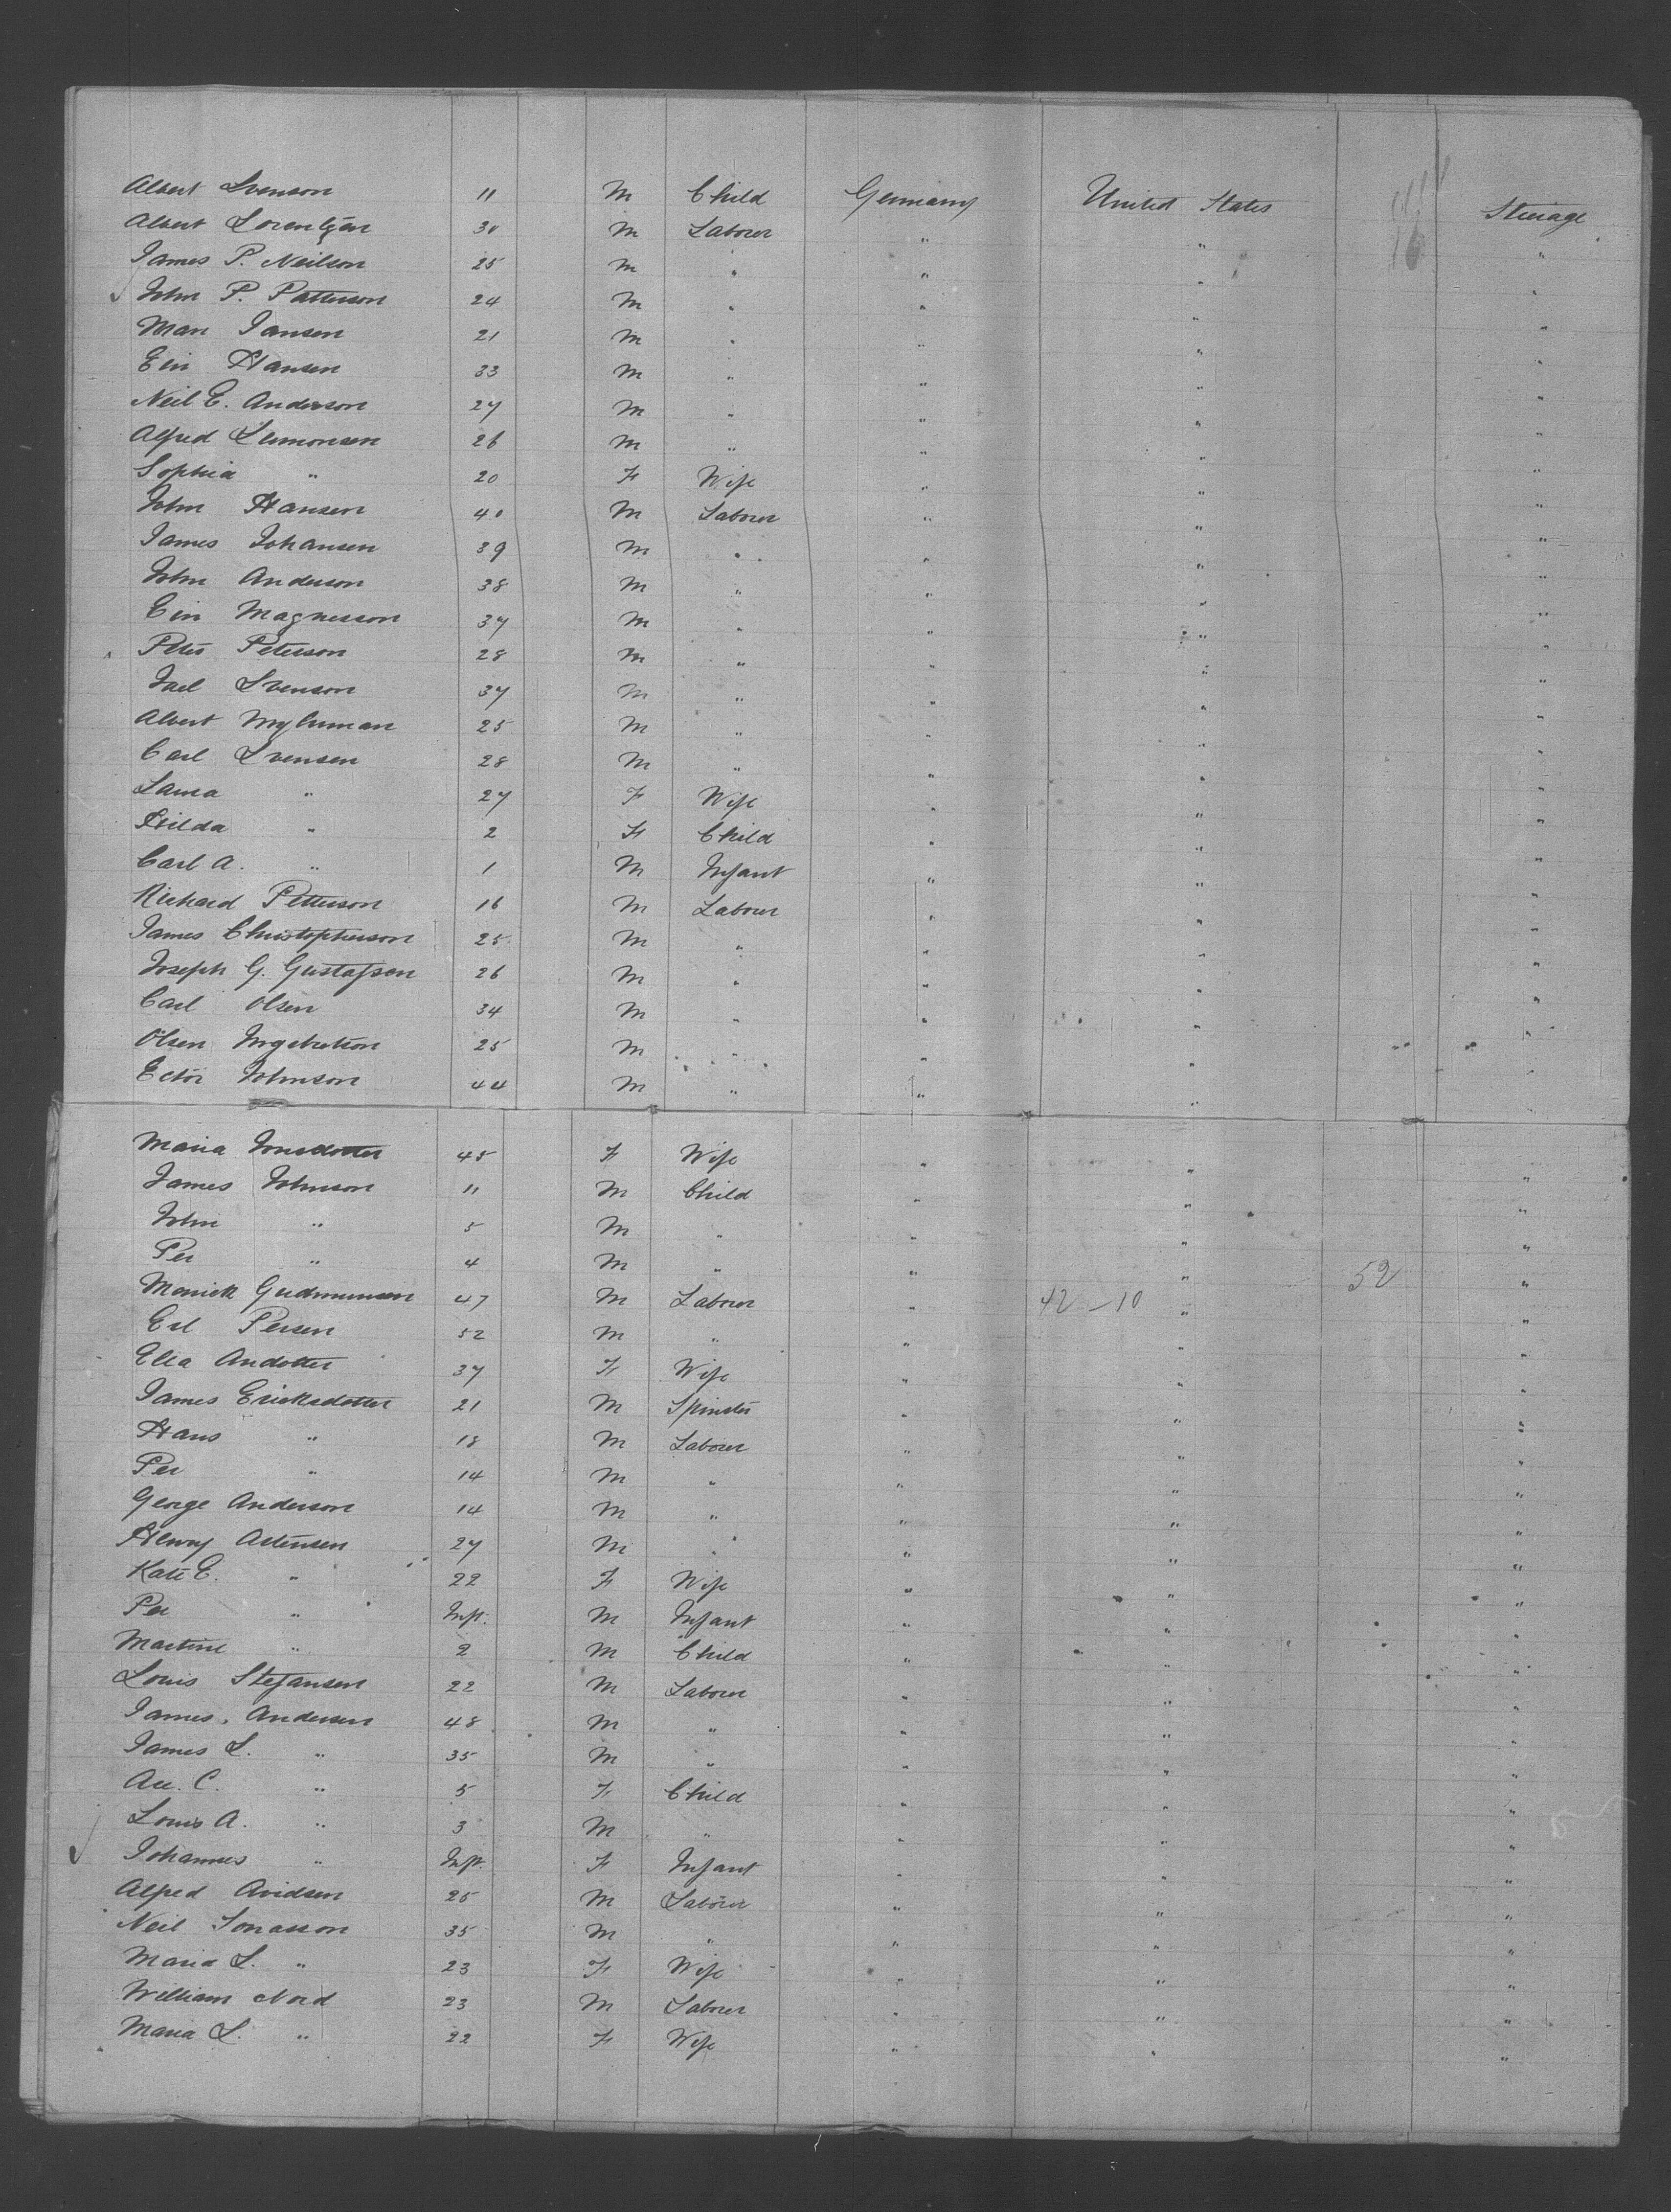 Albert Svenson 11 M Child Germany United States Steerage
Albert Lorentzen 30 M Laborer " " "
James P. Neilson 25 M " " " "
John P. Patterson 24 M " " " "
Man Jansen 21 M " " " "
Ein Hansen 33 M " " " "
Neil E. Anderson 27 M " " " "
Alfred 26 M " " " "
Sophia " 20 F Wife " " "
John Hansen 40 M Laborer " " "
James Johansen 39 M " " " "
John Anderson 38 M " " " "
Ein Magnesson 37 M " " " "
Peter Peterson 28 M " " " "
Jael Svenson 37 M " " " "
Albert 25 M " " " "
Carl Svensen 28 M " " " "
Laura " 27 F Wife " " "
Hilda " 2 F Child " " "
Carl A. " 1 M Infant " " "
Richard Petterson 16 M Laborer " " "
James Christopherson 25 M " " " "
Joseph G. Gustafson 26 M " " " "
Carl Olsen 34 M " " " "
Olsen Ingebretson 25 M " " " "
Ector Johnson 44 M " " " "
Maria Jonsdotter 45 F Wife " " "
James Johnson 11 M Child " " "
John " 5 M " " " "
Per " 4 M " " " "
Gudmunsen 47 M Laborer " 42-10 " 52 "
Erl Persen 52 M " " " "
Ella Andotter 37 F Wife " " "
James Ericksdotter 21 M Spinster " " "
Hans " 18 M Laborer " " "
Per " 14 M " " " "
George Anderson 14 M " " " "
Henry Astensen 27 M " " " "
Kate E. " 22 F Wife " " "
Per " Inft. M Infant " " "
Martine " 2 M Child " " "
Louis Stefansen 22 M Laborer " " "
James Andersen 48 M " " " "
James L. " 35 M " " " "
An. C. " 5 F Child " " "
Louis A. " 3 M " " " "
Johannes " Inft. F Infant " " "
Alfred Avidsen 25 M Laborer " " "
Neil Jonasson 35 M " " " "
Maria L. " 23 F Wife " " "
William Nord 23 M Laborer " " "
Maria L. " 22 F Wife " " "